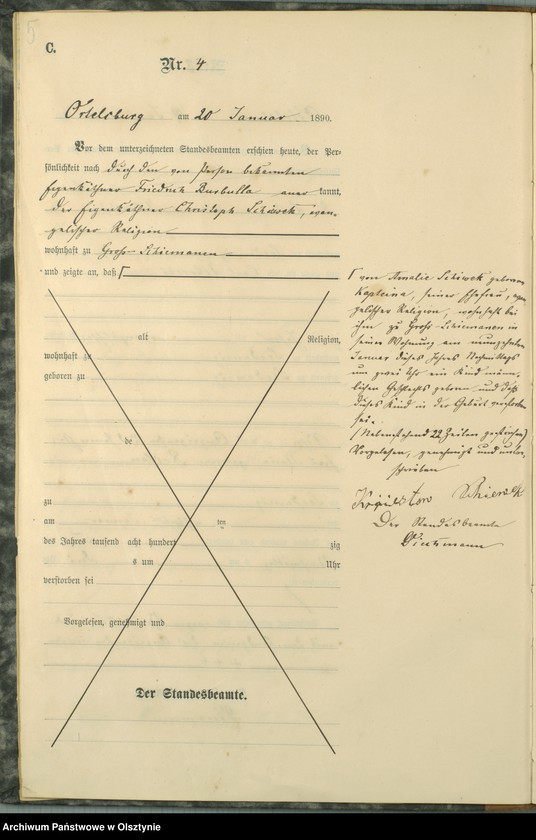 5
C.
Nr. 4
Ortelsburg am 20 Januar 1890.
Vor dem unterzeichneten Standesbeamten erschien heute, der Per-
sönlichkeit nach durch den von Person bekannten
Eigenkäthner Friedrich Burbulla aner kannt,
der Eigenkäthner Christoph Schiwek, evan-
gelischer Religion
wohnhaft zu Groß-Schiemanen
und zeigte an, daß
alt Religion,
wohnhaft zu
geboren zu
de
zu
am ten
des Jahres tausend acht hundert zig
s um Uhr
verstorben sei
Vorgelesen, genehmigt und
Der Standesbeamte.
von Amalie Schiwek geborene
Kapteina, seiner Ehefrau, evan-
gelischer Religion, wohnhaft bei
ihm zu Groß-Schiemanen in
seiner Wohnung am neunzehnten
Januar dieses Jahres Nachmittags
um zwei Uhr ein Kind männ-
lichen Geschlechts geboren und daß
dieses Kind in der Geburt verstorben
sei.
(Nebenstehend 22 Zeilen gestrichen)
Vorgelesen, genehmigt und unter-
schrieben
Der Standesbeamte
Archiwum Państwowe w Olsztynie